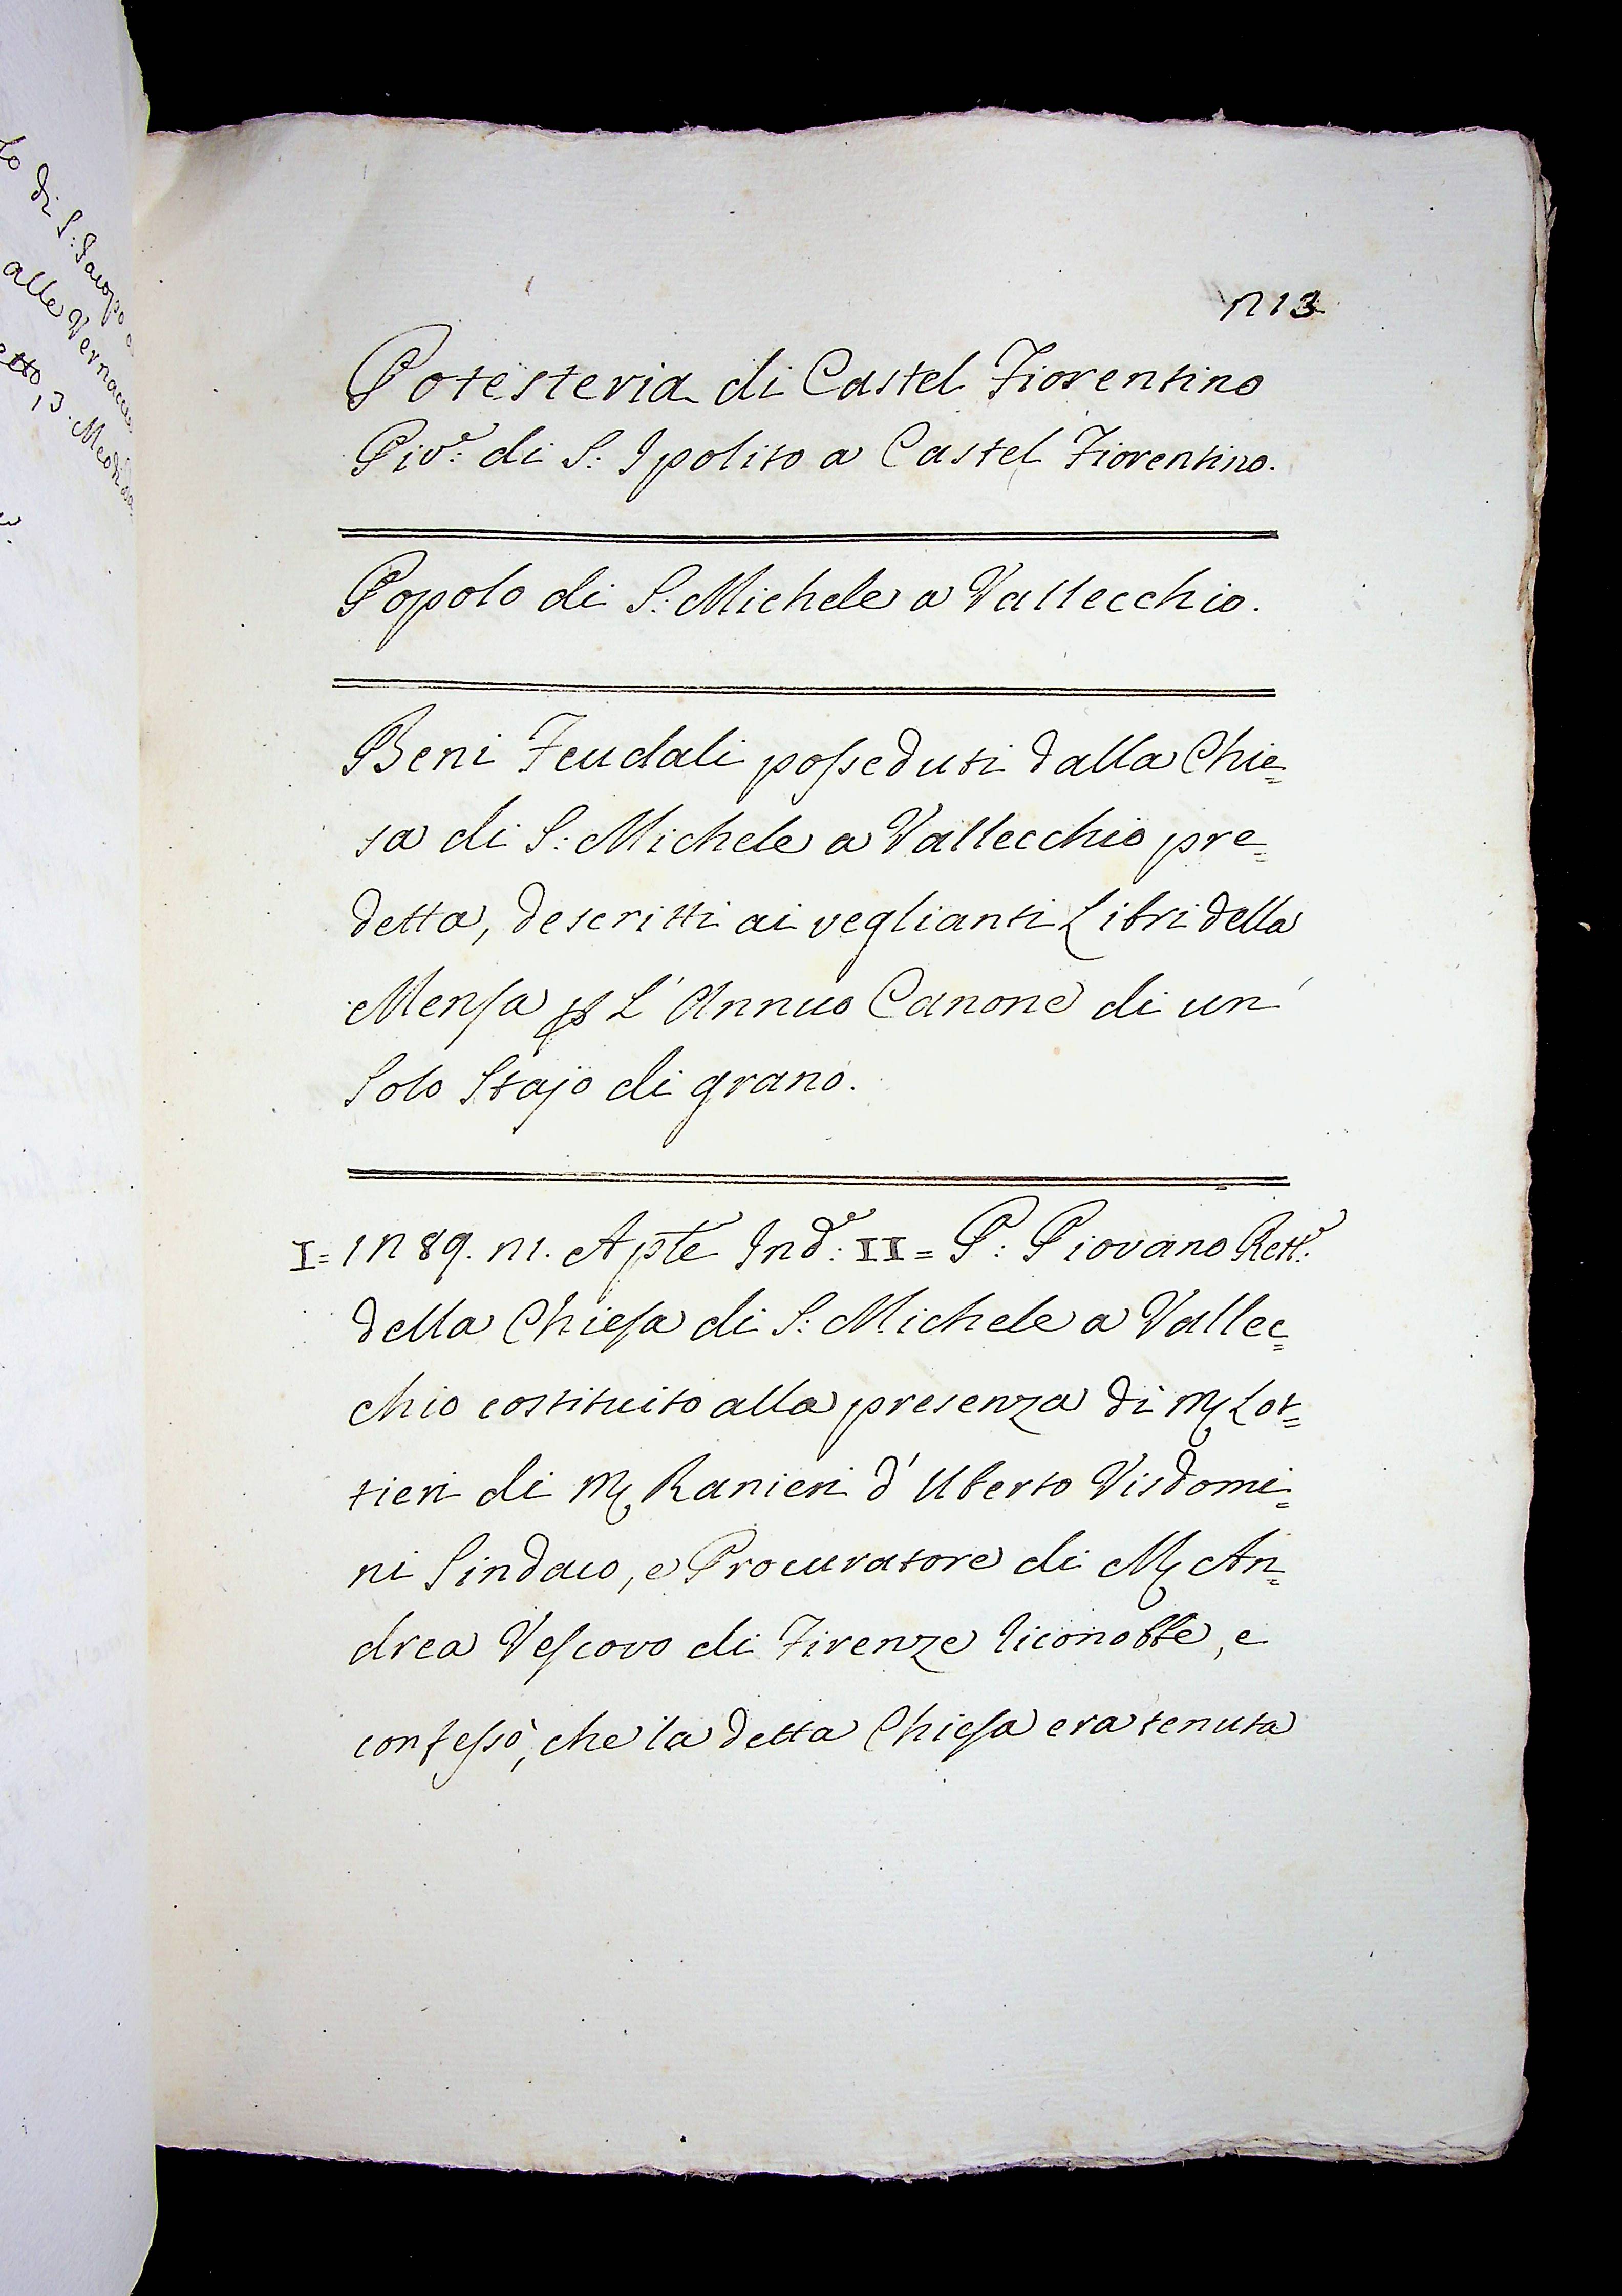 di S: Jacopo
alle
13.
213
Potesteria di Castel Fiorentino
Piv.e di S: Ipolito a Castel Fiorentino.
Popolo di S: Michele a Vallecchio.
Beni Feudali posseduti dalla Chie=
sa di S: Michele a Vallecchio pre=
detta, descritti ai veglianti Libri della
Mensa p L'Annuo Canone di un'
Solo Stajo di grano.
I= 1289. 21. Aple Ind.e: II= P: Piovano Rett.e:
della Chiesa di S: Michele a Vallec=
chio costituito alla presenza di M Lot=
tieri di M Ranieri d'Uberto Visdomi=
ni Sindaco, e Procuratore di M An=
drea Vescovo di Firenze riconobbe, e
confessò, che la detta Chiesa era tenuta